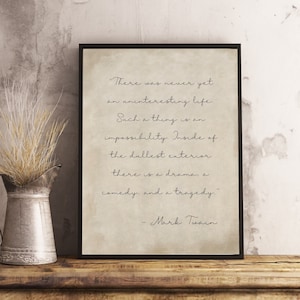 "There was never yet
an uninteresting life.
Such a thing is an
impossibility. Inside of
the dullest exterior
there is a drama, a
comedy, and a tragedy."
- Mark Twain